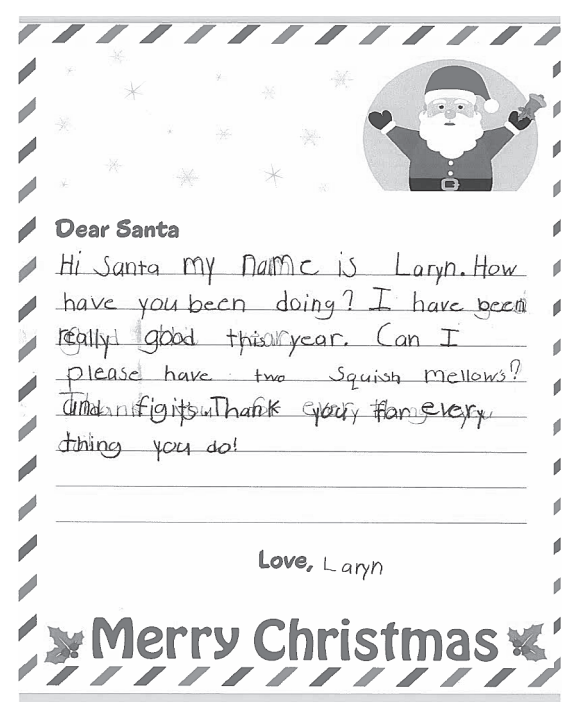 Dear Santa
Hi Santa my name is Laryn. How
have you been doing? I have been
really good this year. Can I
please have two Squish mellows?
and figits. Thank you for every
thing you do!
Love, Laryn
Merry Christmas